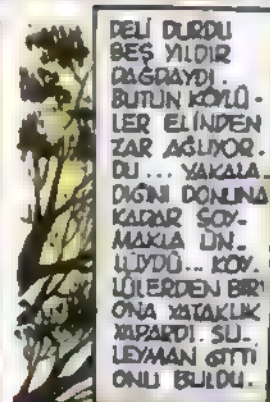 DELİ DURDU
BEŞ YILDIR
DAĞDAYDI.
BÜTÜN KÖYLÜ-
LER ELİNDEN
ZAR AĞLIYOR-
DU... YAKALA-
DIĞINI DONUNA
KADAR SOY-
MAKLA ÜN-
LÜYDÜ... KÖY-
LÜLERDEN BİRİ
ONA YATAKLIK
YAPARDI. SÜ-
LEYMAN GİTTİ
ONU BULDU.